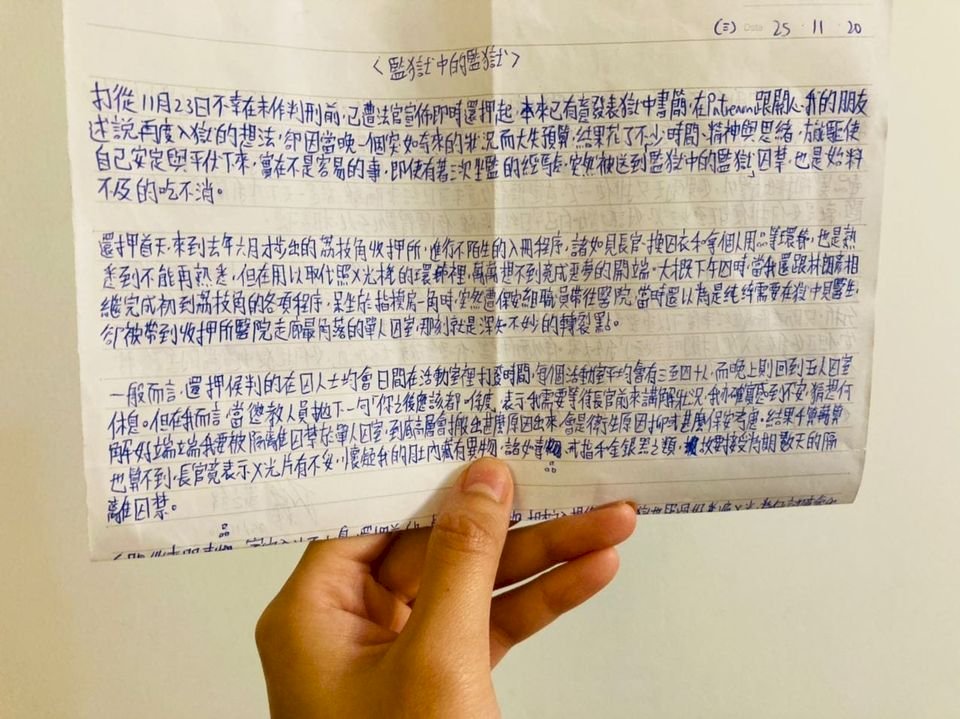 (三) Date 25 · 11 · 20
〈監獄中的監獄〉
打從11月23日不幸在未作判刑前，已遭法官宣佈即時還押起，本來已有意發表獄中書簡，在Patreon跟關心我的朋友
述說再度入獄的想法，卻因當晚一個突如奇來的狀況而大失預算，結果花了不少時間、精神與思緒，方能驅使
自己安定與平伏下來，實在不是容易的事，即使有著三次坐監的經驗，突然被送到「監獄中的監獄」囚禁，也是始料
不及的吃不消。
還押首天，來到去年六月才步出的荔枝角收押所，進行不陌生的入冊程序，諸如見長官、換囚衣和拿個人用品等環節，也是熟
悉到不能再熟悉，但在用以取代照X光機的環節裡，萬萬想不到竟成惡夢的開端。大概下午四時，當我還跟林朗彥相
繼完成初到荔枝角的各項程序，呆坐於指模房一角時，突然遭保安組職員帶往醫院，當時還以為是純綷需要在獄中見醫生，
卻被帶到收押所醫院走廊最角落的單人囚室，那刻就是深知不妙的轉裂點。
一般而言，還押候判的在囚人士均會日間在活動室裡打發時間，每個活動室平均會有三至四十人，而晚上則回到五人囚室
休息。但在我而言，當懲教人員拋下一句「你之後應該都一係度」，表示我需要等待長官前來講解狀況，我亦確實感到不安，猜想何
解好端端我要被隔離囚禁於單人囚室，到底高層會搬出甚麼原因出來，會是衛生原因抑或甚麼保安考慮，結果千算萬算
也算不到，長官竟表示X光片有不妥，懷疑我的肚內藏有異物，諸如毒物、戒指和金銀器之類，故對接受為期數天的隔
離囚禁。